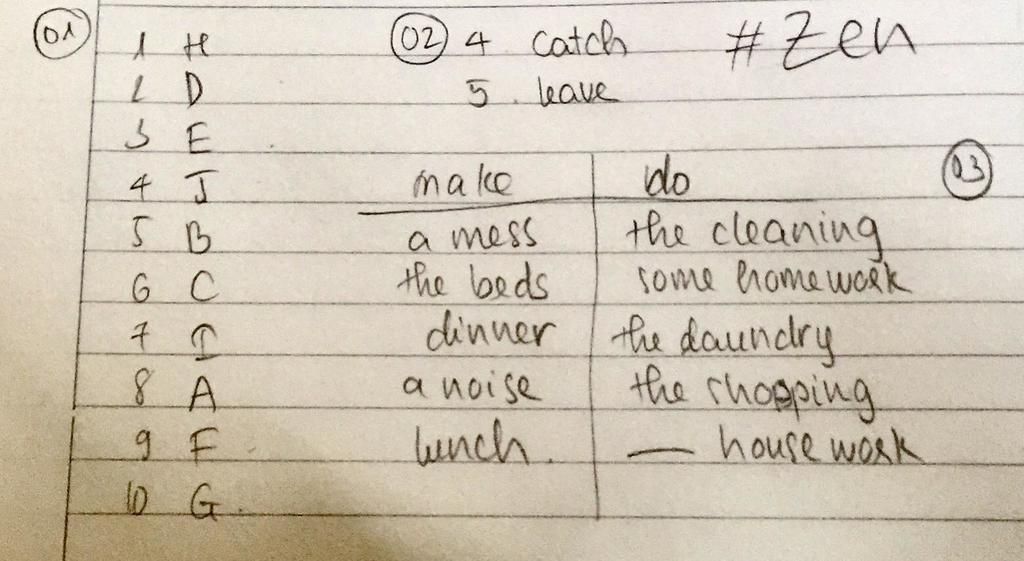 01
1 H
2 D
3 E
4 J
5 B
6 C
7 I
8 A
9 F
10 G.
02 4 catch
5. leave
#Zen
03
make do
a mess the cleaning
the beds some homework
dinner the laundry
a noise the shopping
lunch. — housework